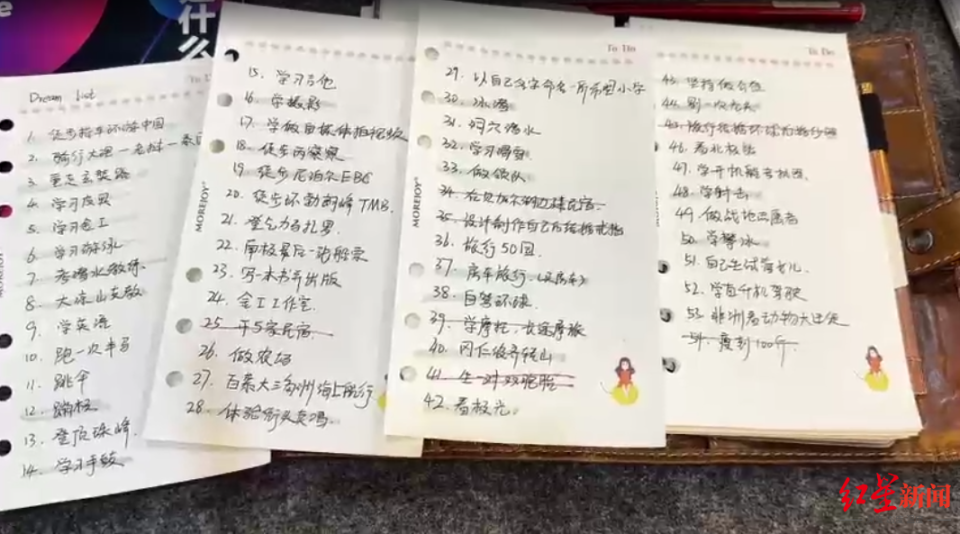 什么
To Do
Dream List
1. 徒步搭车环游中国
2. 骑行大理—老挝—泰国
3. 重走玄奘路
4. 学习皮具
5. 学习金工
6. 学习游泳
7. 考潜水教练
8. 大凉山支教
9. 学英语
10. 跑一次半马
11. 跳伞
12. 蹦极
13. 登顶珠峰
14. 学习手鼓
MOREJOY
15. 学习吉他
16. 学摄影
17. 学做自媒体拍视频
18. 徒步两察察
19. 徒步尼泊尔EBC
20. 徒步环勃朗峰TMB.
21. 登乞力马扎罗
22. 南极最后一班船票
23. 写一本书并出版
24. 金工工作室
25. 开5家民宿
26. 做农场
27. 百慕大三角洲海上航行
28. 体验街头卖唱
To Do
MOREJOY
29. 以自己名字命名一所希望小学
30. 冰潜
31. 洞穴潜水
32. 学习滑雪
33. 做领队
34. 在贝加尔湖边建民宿
35. 设计制作自己的结婚戒指
36. 旅行50国
37. 房车旅行
38. 自驾环球
39. 学摩托，长途摩旅
40. 冈仁波齐转山
41. 生一对双胞胎
42. 看极光
To Do
43. 坚持做公益
44. 剃一次光头
46. 看北极熊
48. 学射击
49. 做战地志愿者
50. 学攀冰
51. 自己生试管女儿
52. 学直升机驾驶
53. 非洲看动物大迁徙
54. 瘦到100斤
红星新闻